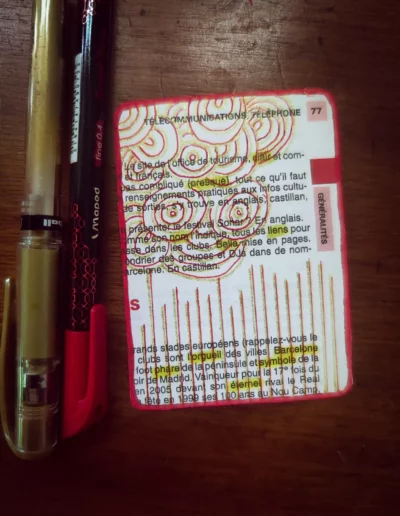 TÉLÉCOMMUNICATIONS, TÉLÉPHONE 77
Le site de l'office de tourisme, clair et com-
et français.
pas compliqué (presque), tout ce qu'il faut
renseignements pratiques aux infos cultu-
se sorties, s'y trouve en anglais, castillan,
présenter le festival Sonar. En anglais.
mme son nom l'indique, tous les liens pour
sse dans les clubs. Belle mise en pages.
ondrier des groupes et DJs dans de nom-
arcelone. En castillan.
GÉNÉRALITÉS
S
rands stades européens (rappelez-vous le
clubs sont l'orgueil des villes. Barcelone
foot phare de la péninsule et symbole de la
oir de Madrid. Vainqueur pour la 17e fois du
en 2005 devant son éternel rival le Real
a fêté en 1999 ses 100 ans au Nou Camp,
ball
Maped
fine 0.4